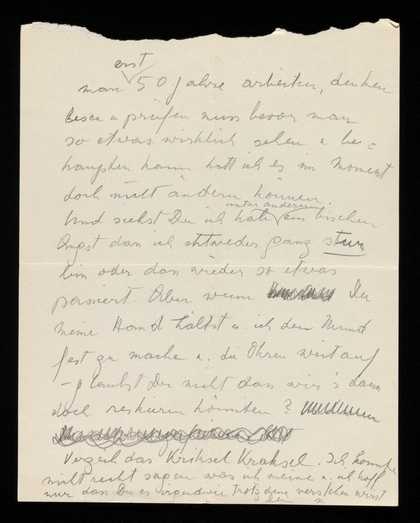 erst
man 50 Jahre arbeiten, denken
lesen u prüfen muss bevor man
so etwas wirklich sehen u be=
haupten kann hätt ich es im Moment
doch nicht andern können.
unter anderem
Und siehst Du ich hätte ein bischen
Angst dan ich entweder ganz stur
bin oder dan wieder so etwas
passiert. Aber wenn Du
meine Hand hältst u ich den Mund
fest zu mache u. die Ohren weit auf
– glaubst Du nicht dan wir's dann
doch reskieren könnten?
Verzeih das Kriksel Kraksel. Ich konnte
nicht recht sagen was ich meine u. ich hoff
nur dan Du es irgendwie trotzdem verstehen wirst